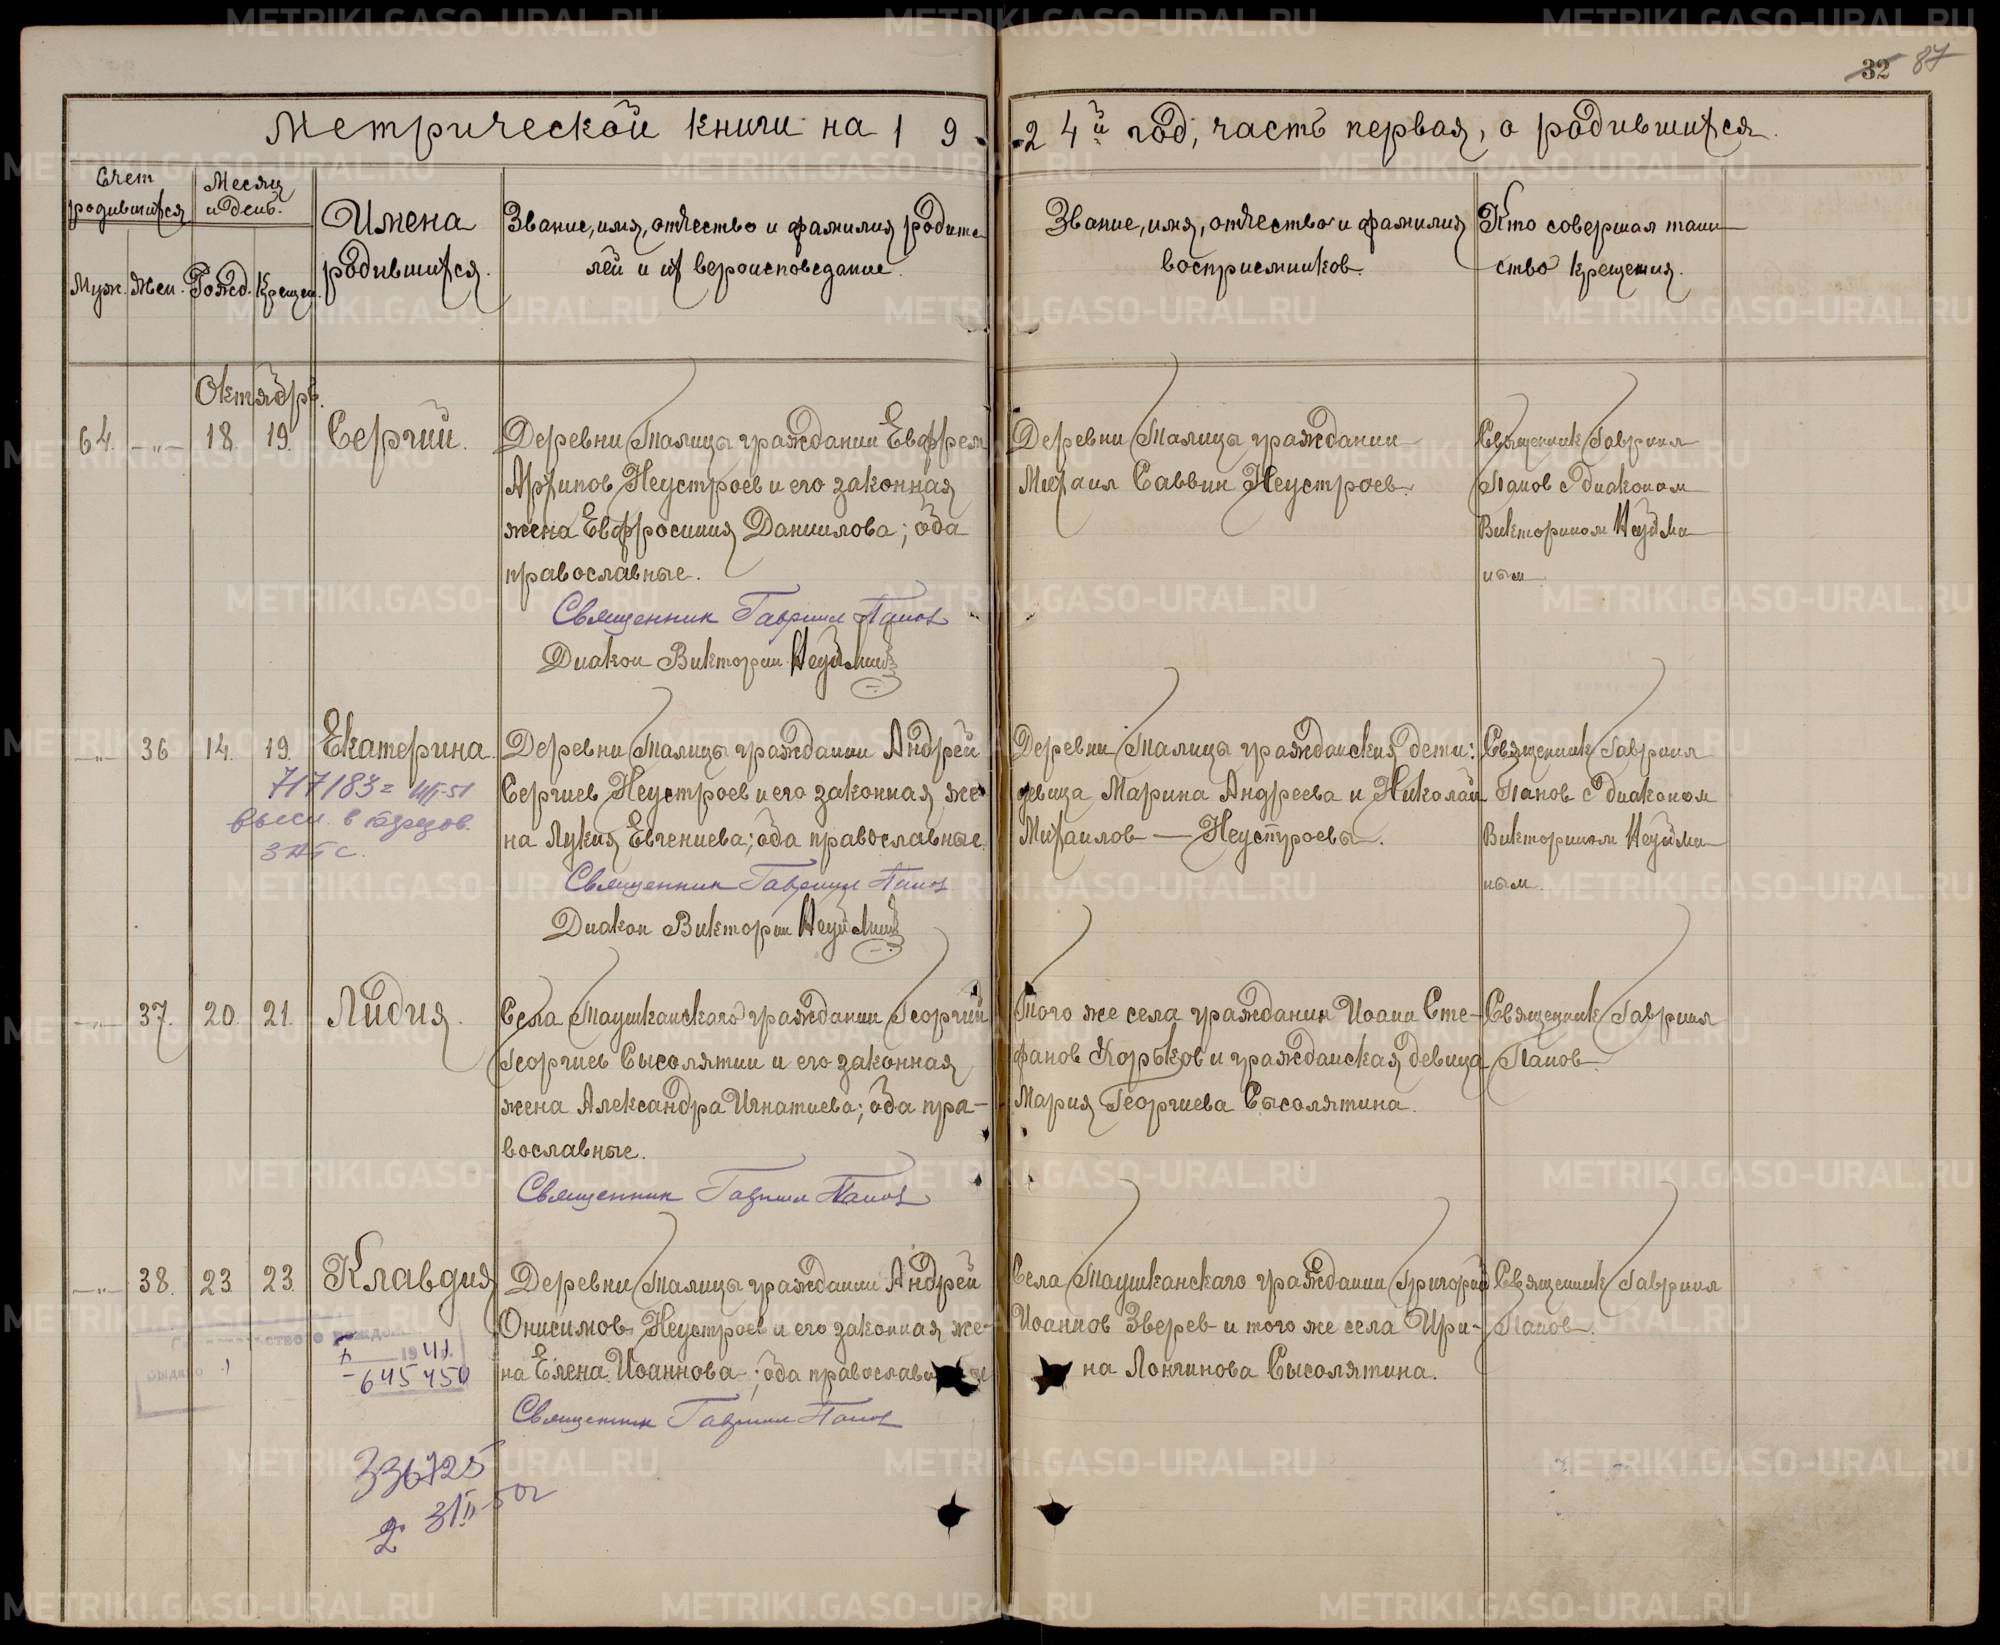 32 87
Метрической книги на 1924й год, часть первая, о родившихся.
Счет родившихся
Муж. Жен.
Месяц и день.
Рожд. Крещен.
Имена родившихся.
Звание, имя, отчество и фамилия родите-
лей и их вероисповедание.
Звание, имя, отчество и фамилия
восприемников.
Кто совершал таин-
ство крещения.
Октябрь.
64. —„— 18. 19. Сергий.
Деревни Талицы гражданин Евфрем
Архипов Неустроев и его законная
жена Евфросиния Даниилова; оба
православные.
Священник Гавриил Попов
Диакон Викторин Неуймин
Деревни Талицы гражданин
Михаил Саввин Неустроев.
Священник Гавриил
Попов с диаконом
Викторином Неуйми-
ным
—„— 36 14. 19. Екатерина.
717183
ЗАГС.
Деревни Талицы гражданин Андрей
Сергиев Неустроев и его законная же-
на Лукия Евгениева; оба православные.
Священник Гавриил Попов
Диакон Викторин Неуймин
Деревни Талицы гражданския дети:
девица Марина Андреева и Николай
Михаилов — Неустроевы.
Священник Гавриил
Попов с диаконом
Викторином Неуйми-
ным.
—„— 37. 20. 21. Лидия.
Села Таушканскаго гражданин Георгий
Георгиев Сысолятин и его законная
жена Александра Игнатиева; оба пра-
вославные.
Священник Гавриил Попов
Того же села гражданин Иоанн Сте-
фанов Корьков и гражданская девица
Мария Георгиева Сысолятина.
Священник Гавриил
Попов.
—„— 38. 23. 23. Клавдия
1941.
645450
336725
2 3/II-50г
Деревни Талицы гражданин Андрей
Онисимов Неустроев и его законная же-
на Елена Иоаннова; оба православные
Священник Гавриил Попов
Села Таушканскаго гражданин Григорий
Иоаннов Зверев и того же села Ири-
на Лонгинова Сысолятина.
Священник Гавриил
Попов.
METRIKI.GASO-URAL.RU